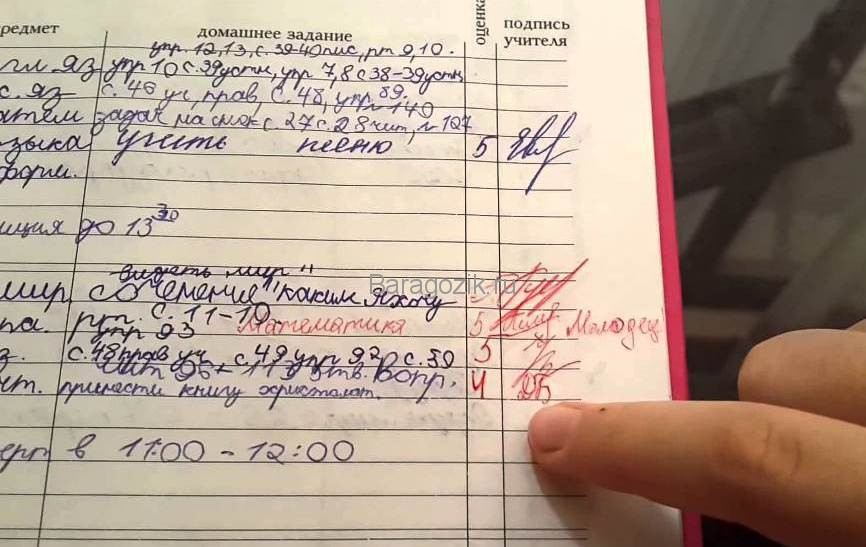 редмет домашнее задание оценка подпись учителя
упр. 12, 13, с. 39-40 пис, рт 9, 10.
гл. яз упр 10 с. 39 устн, упр 7, 8 с 38-39 устн
с. яз с. 46 уч, прав, с. 48, упр 89.
атем задач на смек с. 27 с. 28 чит, № 127 № 140
зыка учить песню 5
форм.
иция до 13 30
видеть мир"
мир сочинение "каким я хочу
Baragozik.ru
па. рт. с. 11-10 Математика 5 Молодец!
упр 93
з. с. 48 прав уч с. 49 упр 92 с. 59 5
чит 96 + 113 отв. вопр.
чт. принести книгу христомат. 4
ерт в 11:00 - 12:00